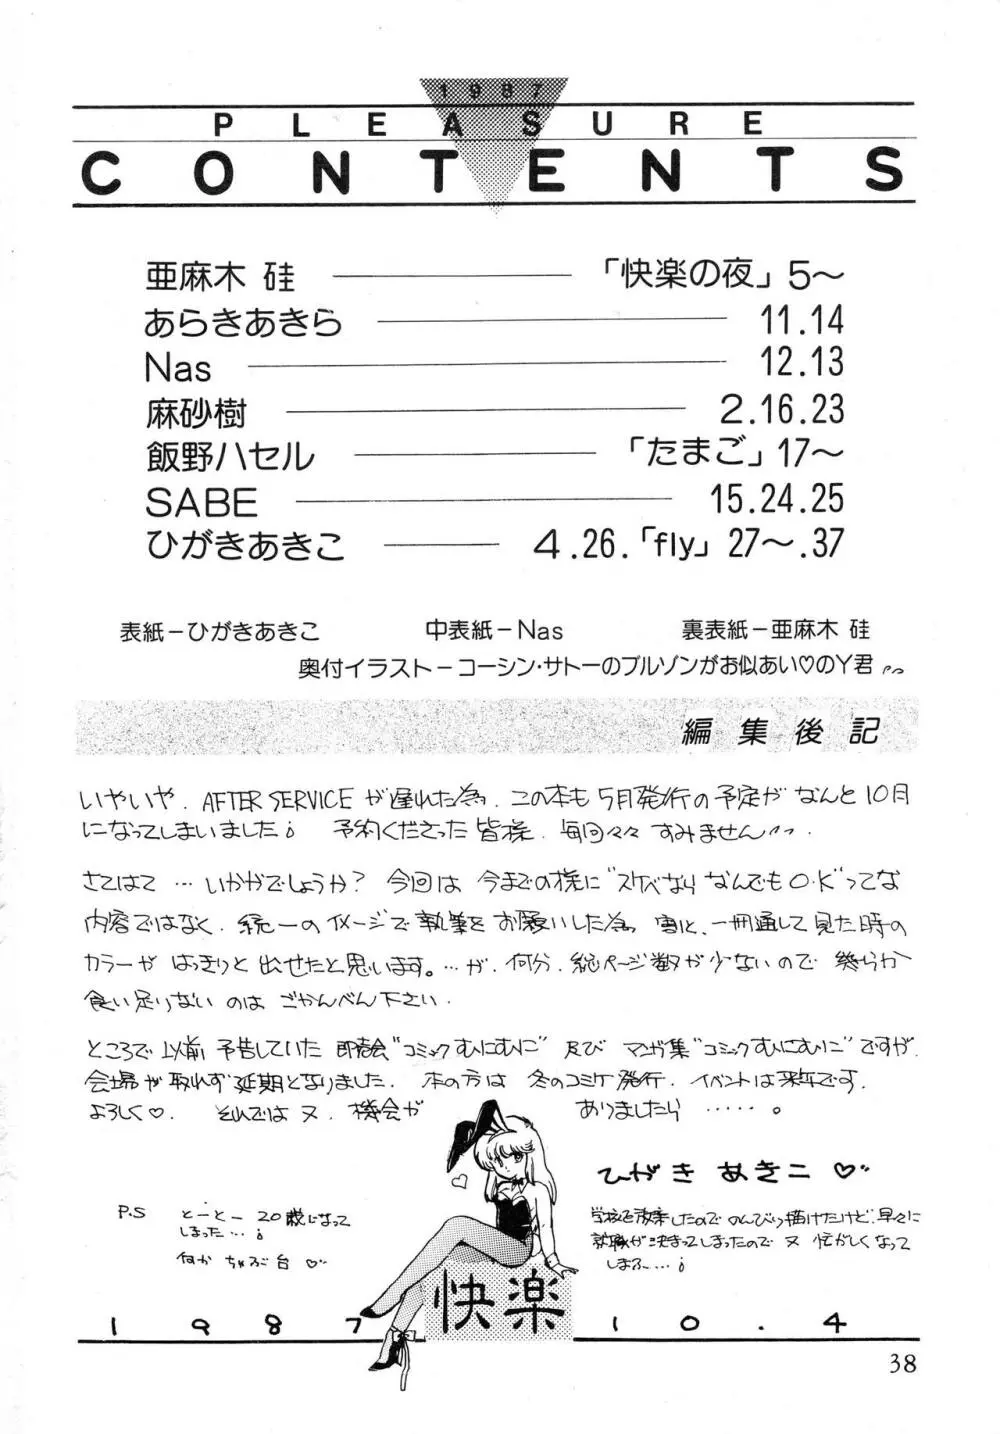 1987
PLEASURE
CONTENTS
亜麻木 硅 「快楽の夜」5〜
あらきあきら 11.14
Nas 12.13
麻砂樹 2.16.23
飯野ハセル 「たまご」17〜
SABE 15.24.25
ひがきあきこ 4.26.「fly」27〜.37
表紙－ひがきあきこ 中表紙－Nas 裏表紙－亜麻木 硅
奥付イラスト－コーシン・サトーのブルゾンがお似あい♡のY君
編集後記
いやいや、AFTER SERVICEが遅れた為、この本も5月発行の予定がなんと10月
になってしまいました。 予約くださった皆様、毎回々々すみません
さてはて…いかがでしょうか? 今回は今までの様に“スケベならなんでもO.K”ってな
内容ではなく、統一のイメージで執筆をお願いした為、一冊通して見た時の
カラーがはっきりと出せたと思います。…が、何分、総ページ数が少ないので幾らか
食い足りないのはごかんべん下さい。
ところで以前予告していた即売会“コミックむにむに”及びマンガ集“コミックむにむに”ですが、
会場が取れず延期となりました。本の方は冬のコミケ発行、イベントは来年です。
よろしく♡. それではヌ、機会が ありましたら……。
ひがきあきこ♡
P.S とーとー20歳になって
しまった…
何かちゃぶ台♡
学校を放棄したのでのんびり描けたけど、早々に
就職が決まってしまったのでヌ忙がしくなって
しまふ…
快楽
1987 10.4
38